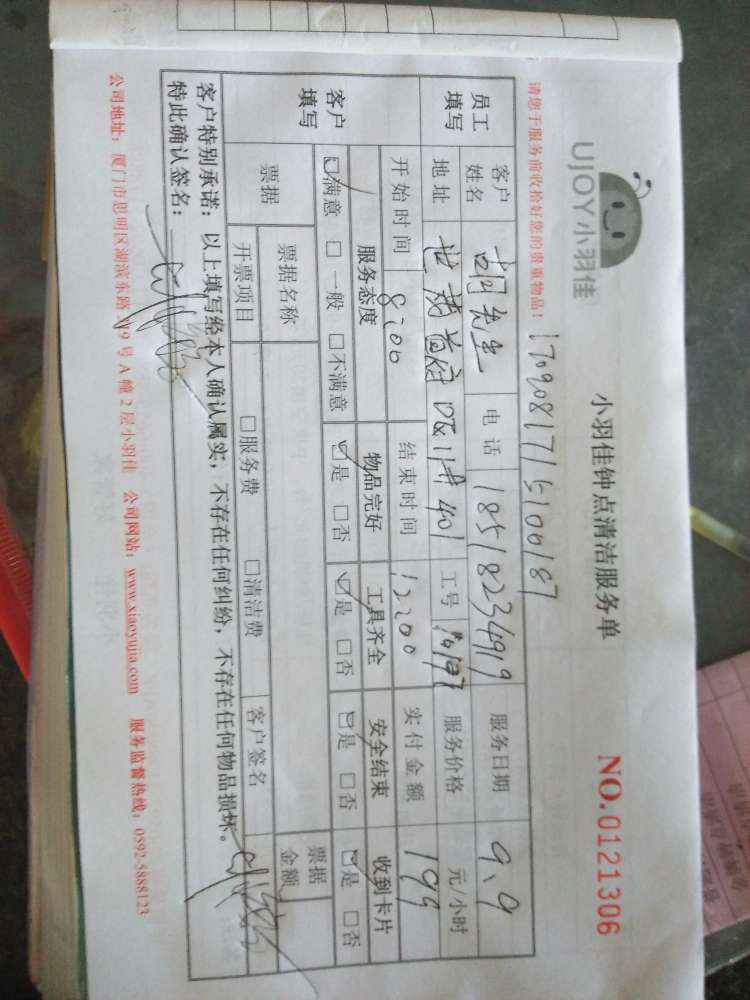 UJOY小羽佳
小羽佳钟点清洁服务单
NO.0121306
请您于服务前收拾好您的贵重物品！
员工填写
客户姓名 胡先生 电话 18518234919 服务日期 9.9
地址 工号 服务价格 元/小时
开始时间 8:00 结束时间 12:00 实付金额 199
客户填写
服务态度 物品完好 工具齐全 安全结束 收到卡片
☑满意 □一般 □不满意 ☑是 □否 ☑是 □否 ☑是 □否 ☑是 □否
票据 票据名称 票据金额
开票项目 □服务费 □清洁费 客户签名
客户特别承诺：以上填写经本人确认属实，不存在任何纠纷，不存在任何物品损坏。
特此确认签名：
公司地址：厦门市思明区湖滨东路319号A幢2层小羽佳 公司网站：www.xiaoyujia.com 服务监督热线：0592-5888123